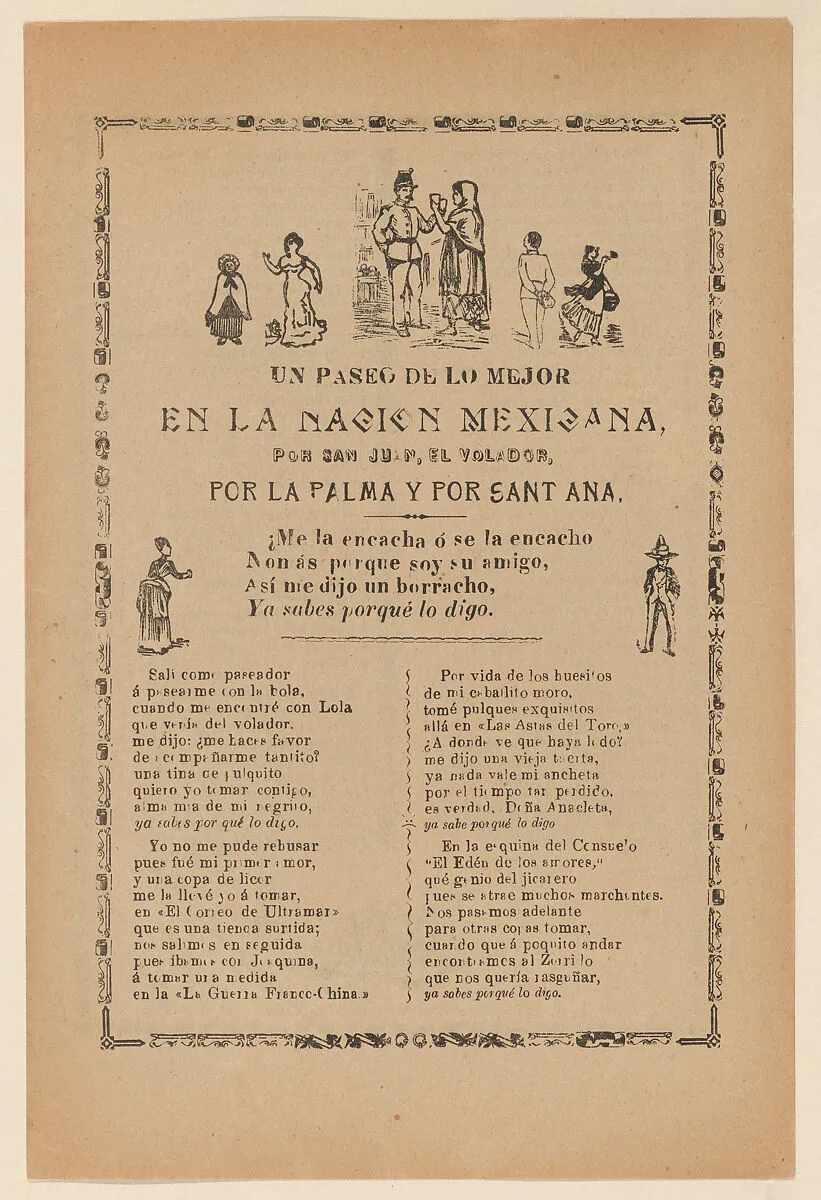 UN PASEO DE LO MEJOR
EN LA NACION MEXICANA,
POR SAN JUAN, EL VOLADOR,
POR LA PALMA Y POR SANT ANA.
¿Me la encacha ó se la encacho
Non ás porque soy su amigo,
Así me dijo un borracho,
Ya sabes porqué lo digo.
Salí como paseador
á pasearme con la bola,
cuando me encontré con Lola
que venía del volador.
me dijo: ¿me haces favor
de acompañarme tantito?
una tina de pulquito
quiero yo tomar contigo,
alma mía de mi negrito,
ya sabes por qué lo digo.
Yo no me pude rehusar
pues fué mi primer amor,
y una copa de licor
me la llevé yo á tomar,
en «El Correo de Ultramar»
que es una tienda surtida;
nos salimos en seguida
pues íbamos con Joaquina,
á tomar una medida
en la «La Guerra Franco-China.»
Por vida de los huesitos
de mi caballito moro,
tomé pulques exquisitos
allá en «Las Astas del Toro,»
¿A donde ve que haya ledo?
me dijo una vieja tuerta,
ya nada vale mi ancheta
por el tiempo tan perdido,
es verdad, Doña Anacleta,
ya sabe porqué lo digo
En la esquina del Consuelo
"El Edén de los amores,"
qué genio del jicarero
pues se atrae muchos marchantes.
Nos pasemos adelante
para otras copas tomar,
cuando que á poquito andar
encontramos al Zorrillo
que nos quería rasguñar,
ya sabes porqué lo digo.